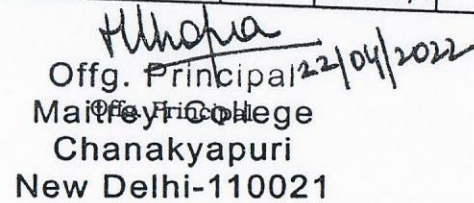 Offg. Principal 22/04/2022
Maitreyi College
Offg. Principal
Chanakyapuri
New Delhi-110021